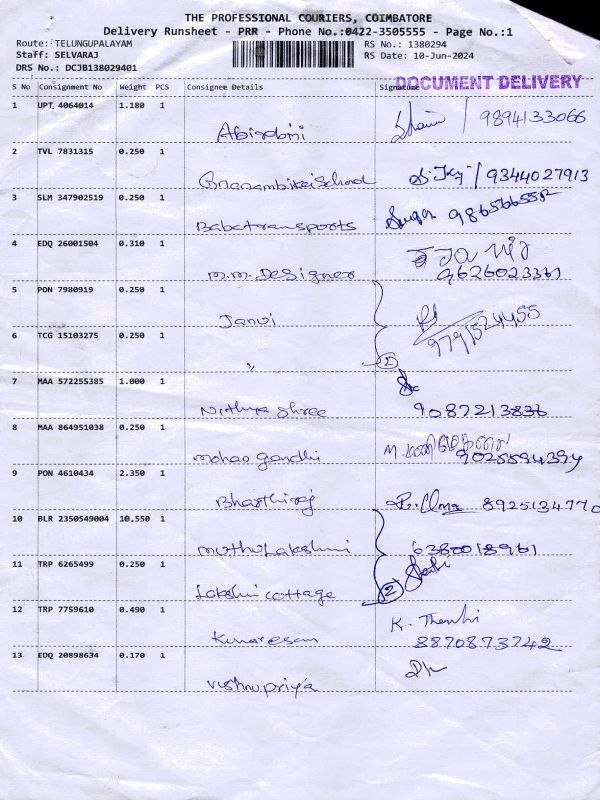 THE PROFESSIONAL COURIERS, COIMBATORE
Delivery Runsheet - PRR - Phone No.:0422-3505555 - Page No.:1
Route: TELUNGUPALAYAM RS No.: 1380294
Staff: SELVARAJ RS Date: 10-Jun-2024
DRS No.: DCJB138029401
DOCUMENT DELIVERY
S No Consignment No Weight PCS Consignee Details Signature
1 UPT 4064014 1.180 1
Abirabmi 9894133066
2 TVL 7831315 0.250 1
Gnanambikai School 9344027913
3 SLM 347902519 0.250 1
Babatransports
4 EDQ 26001504 0.310 1
M.M. Designer 9626023361
5 PON 7980919 0.250 1
Janvi 9791524455
6 TCG 15103275 0.250 1
"
7 MAA 572255385 1.000 1
Nithya Shree 9087213836
8 MAA 864951038 0.250 1
mohan gandhi
9 PON 4610434 2.350 1
Bharthiraj 8925134770
10 BLR 2350549004 10.550 1
muthulakshmi 6380018961
11 TRP 6265499 0.250 1
Lakshmi cottage 2
12 TRP 7759610 0.490 1
Kumaresan 8870873742
13 EDQ 20898634 0.170 1
vishnupriya